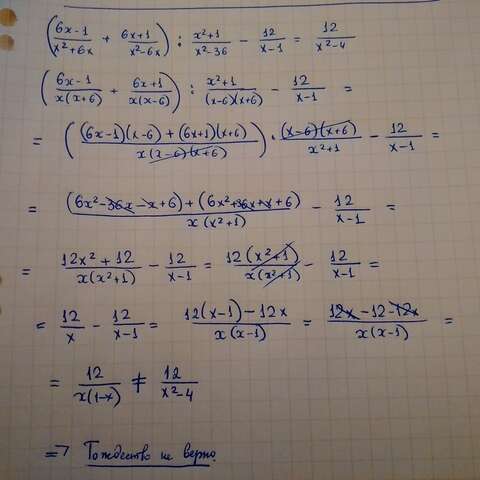 ((6x-1)/(x²+6x) + (6x+1)/(x²-6x)) : (x²+1)/(x²-36) - 12/(x-1) = 12/(x²-4)
((6x-1)/(x(x+6)) + (6x+1)/(x(x-6))) : (x²+1)/((x-6)(x+6)) - 12/(x-1) =
= (((6x-1)(x-6) + (6x+1)(x+6))/(x(x-6)(x+6))) · ((x-6)(x+6))/(x²+1) - 12/(x-1) =
= ((6x²-36x-x+6)+(6x²+36x+x+6))/(x(x²+1)) - 12/(x-1) =
= (12x²+12)/(x(x²+1)) - 12/(x-1) = 12(x²+1)/(x(x²+1)) - 12/(x-1) =
= 12/x - 12/(x-1) = (12(x-1)-12x)/(x(x-1)) = (12x-12-12x)/(x(x-1)) =
= 12/(x(1-x)) ≠ 12/(x²-4)
=> Тождество не верно.